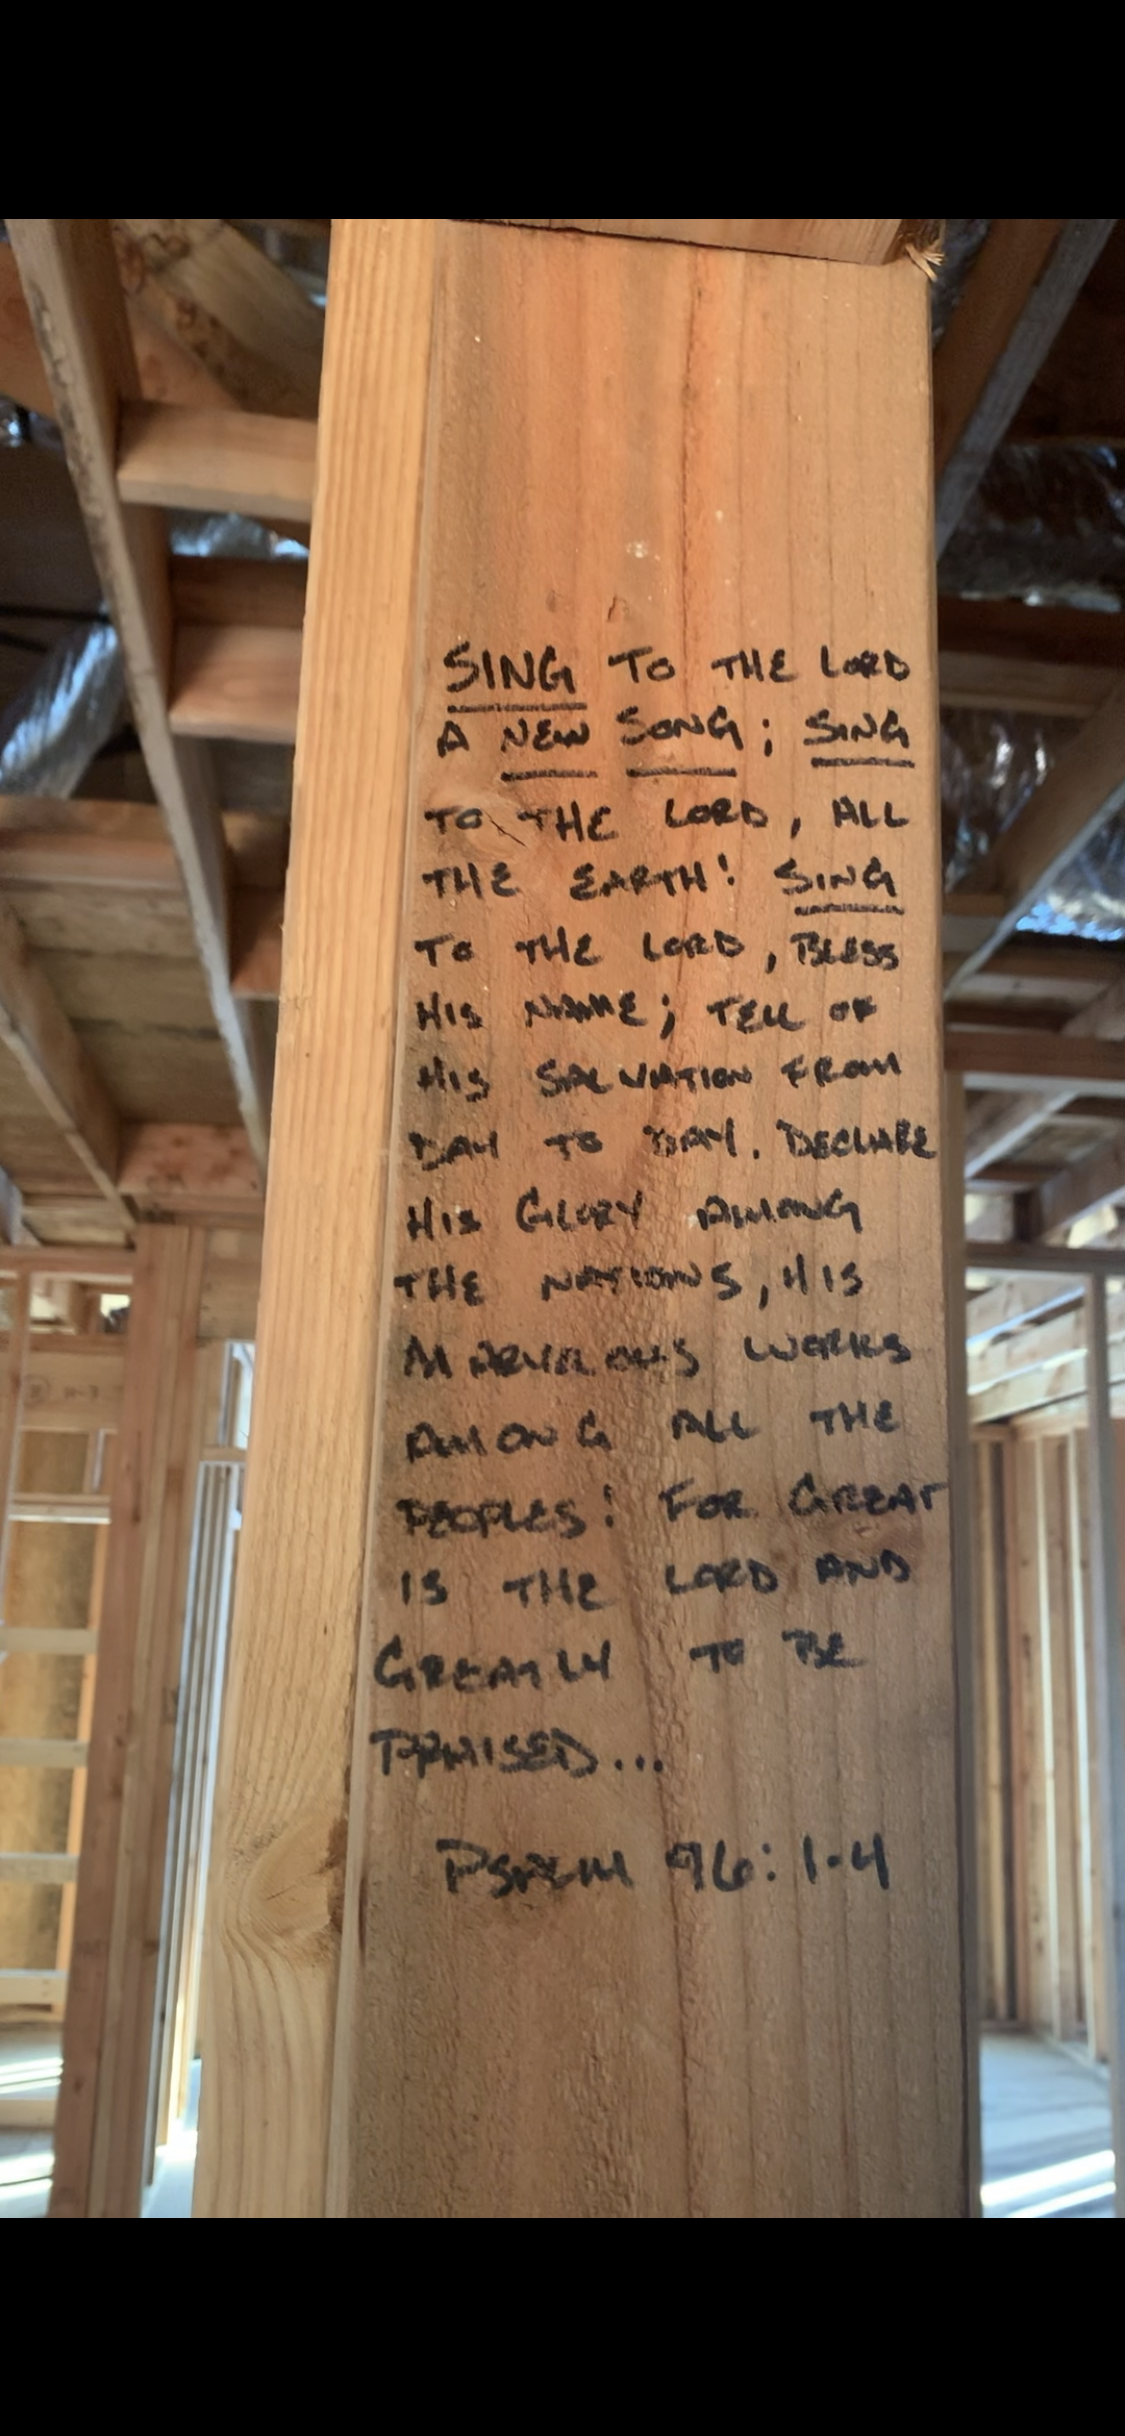 SING TO THE LORD
A NEW SONG; SING
TO THE LORD, ALL
THE EARTH! SING
TO THE LORD, BLESS
HIS NAME; TELL OF
HIS SALVATION FROM
DAY TO DAY. DECLARE
HIS GLORY AMONG
THE NATIONS, HIS
MARVELOUS WORKS
AMONG ALL THE
PEOPLES! FOR GREAT
IS THE LORD AND
GREATLY TO BE
PRAISED...
PSALM 96:1-4